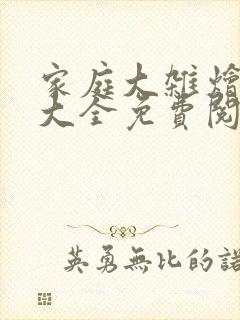 家庭大雜燴
大全免費閱
英勇無比的諾